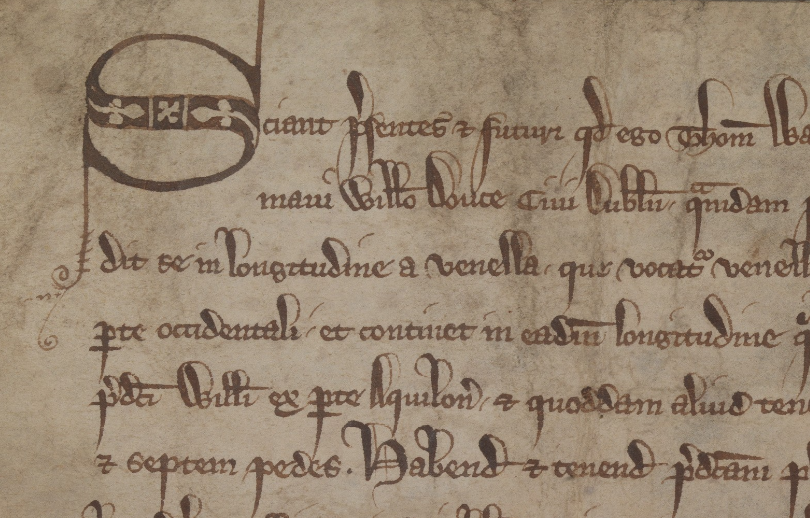 Sciant p̄sentes ⁊ futuri qd̄ ego Thom̄
maui Willo Douce Ciui Dublin̄ quādam
dit se in longitudine a venella que vocatᷣ venell
ꝑte occidentali et continet in eadm̄ longitudine
p̄dc̄i Willi ex ꝑte Aquilon̄ ⁊ quoddam aliud ten
⁊ septem pedes. Habend̄ ⁊ tenend̄ p̄dc̄am